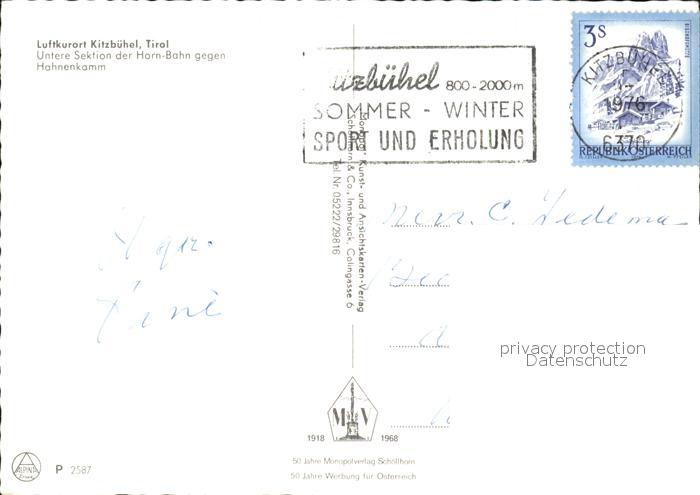 Luftkurort Kitzbühel, Tirol
Untere Sektion der Horn-Bahn gegen
Hahnenkamm
Kitzbühel 800-2000m
SOMMER - WINTER
SPORT UND ERHOLUNG
3S
KITZBÜHEL
1976
6370
REPUBLIK ÖSTERREICH
Kunst- und Ansichtskarten-Verlag
& Co., Innsbruck, Colingasse 6
Tel. Nr. 05222/29816
C. Iedema
René
privacy protection
Datenschutz
M V
1918 1968
50 Jahre Monopolverlag Schöllhorn
50 Jahre Werbung für Österreich
ALPINA
P 2587